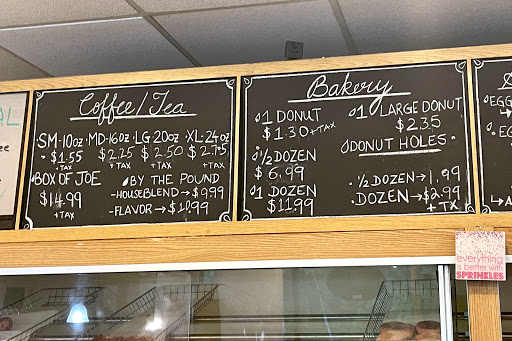 AL
Coffee/Tea
SM-10oz-MD-16oz-LG 20oz XL-24oz
$1.55 $2.25 $2.50 $2.75
+TAX +TAX +TAX +TAX
BOX OF JOE
$14.99
+TAX
BY THE POUND
-HOUSEBLEND→$9.99
-FLAVOR→$10.99
Bakery
1 DONUT
$1.30+TAX
½ DOZEN
$6.99
1 DOZEN
$11.99
1 LARGE DONUT
$2.35
DONUT HOLES
½ DOZEN→1.99
DOZEN→$2.99
+TAX
EGG
everything
is better with
SPRINKLES